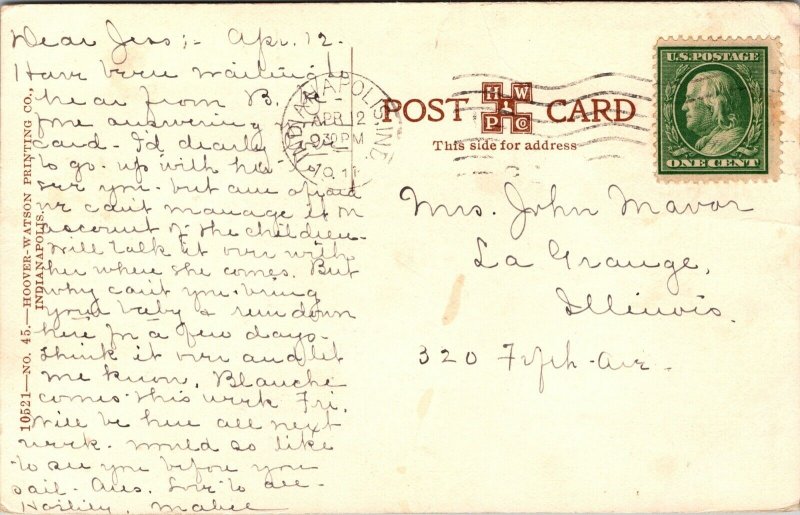 Dear Jess;- Apr. 12.
Have been waiting to
hear from B.
for answering
card. I'd dearly love
to go up with her
see you - but am afraid
we can't manage it on
account of the children.
Will talk it over with
her when she comes. But
why can't you bring
your baby & run down
here for a few days.
Think it over and let
me know. Blanche
comes this week Fri.
Will be here all next
week. Would so like
to see you before you
sail. Ans. Love to all-
Hastily, Mabel
10521—NO. 45.—HOOVER-WATSON PRINTING CO.,
INDIANAPOLIS.
INDIANAPOLIS, IND
APR 12
930PM
POST CARD
H W
P Co
This side for address
U.S. POSTAGE
ONE CENT
Mrs. John Mavor
La Grange,
Illinois.
320 Fifth Ave.